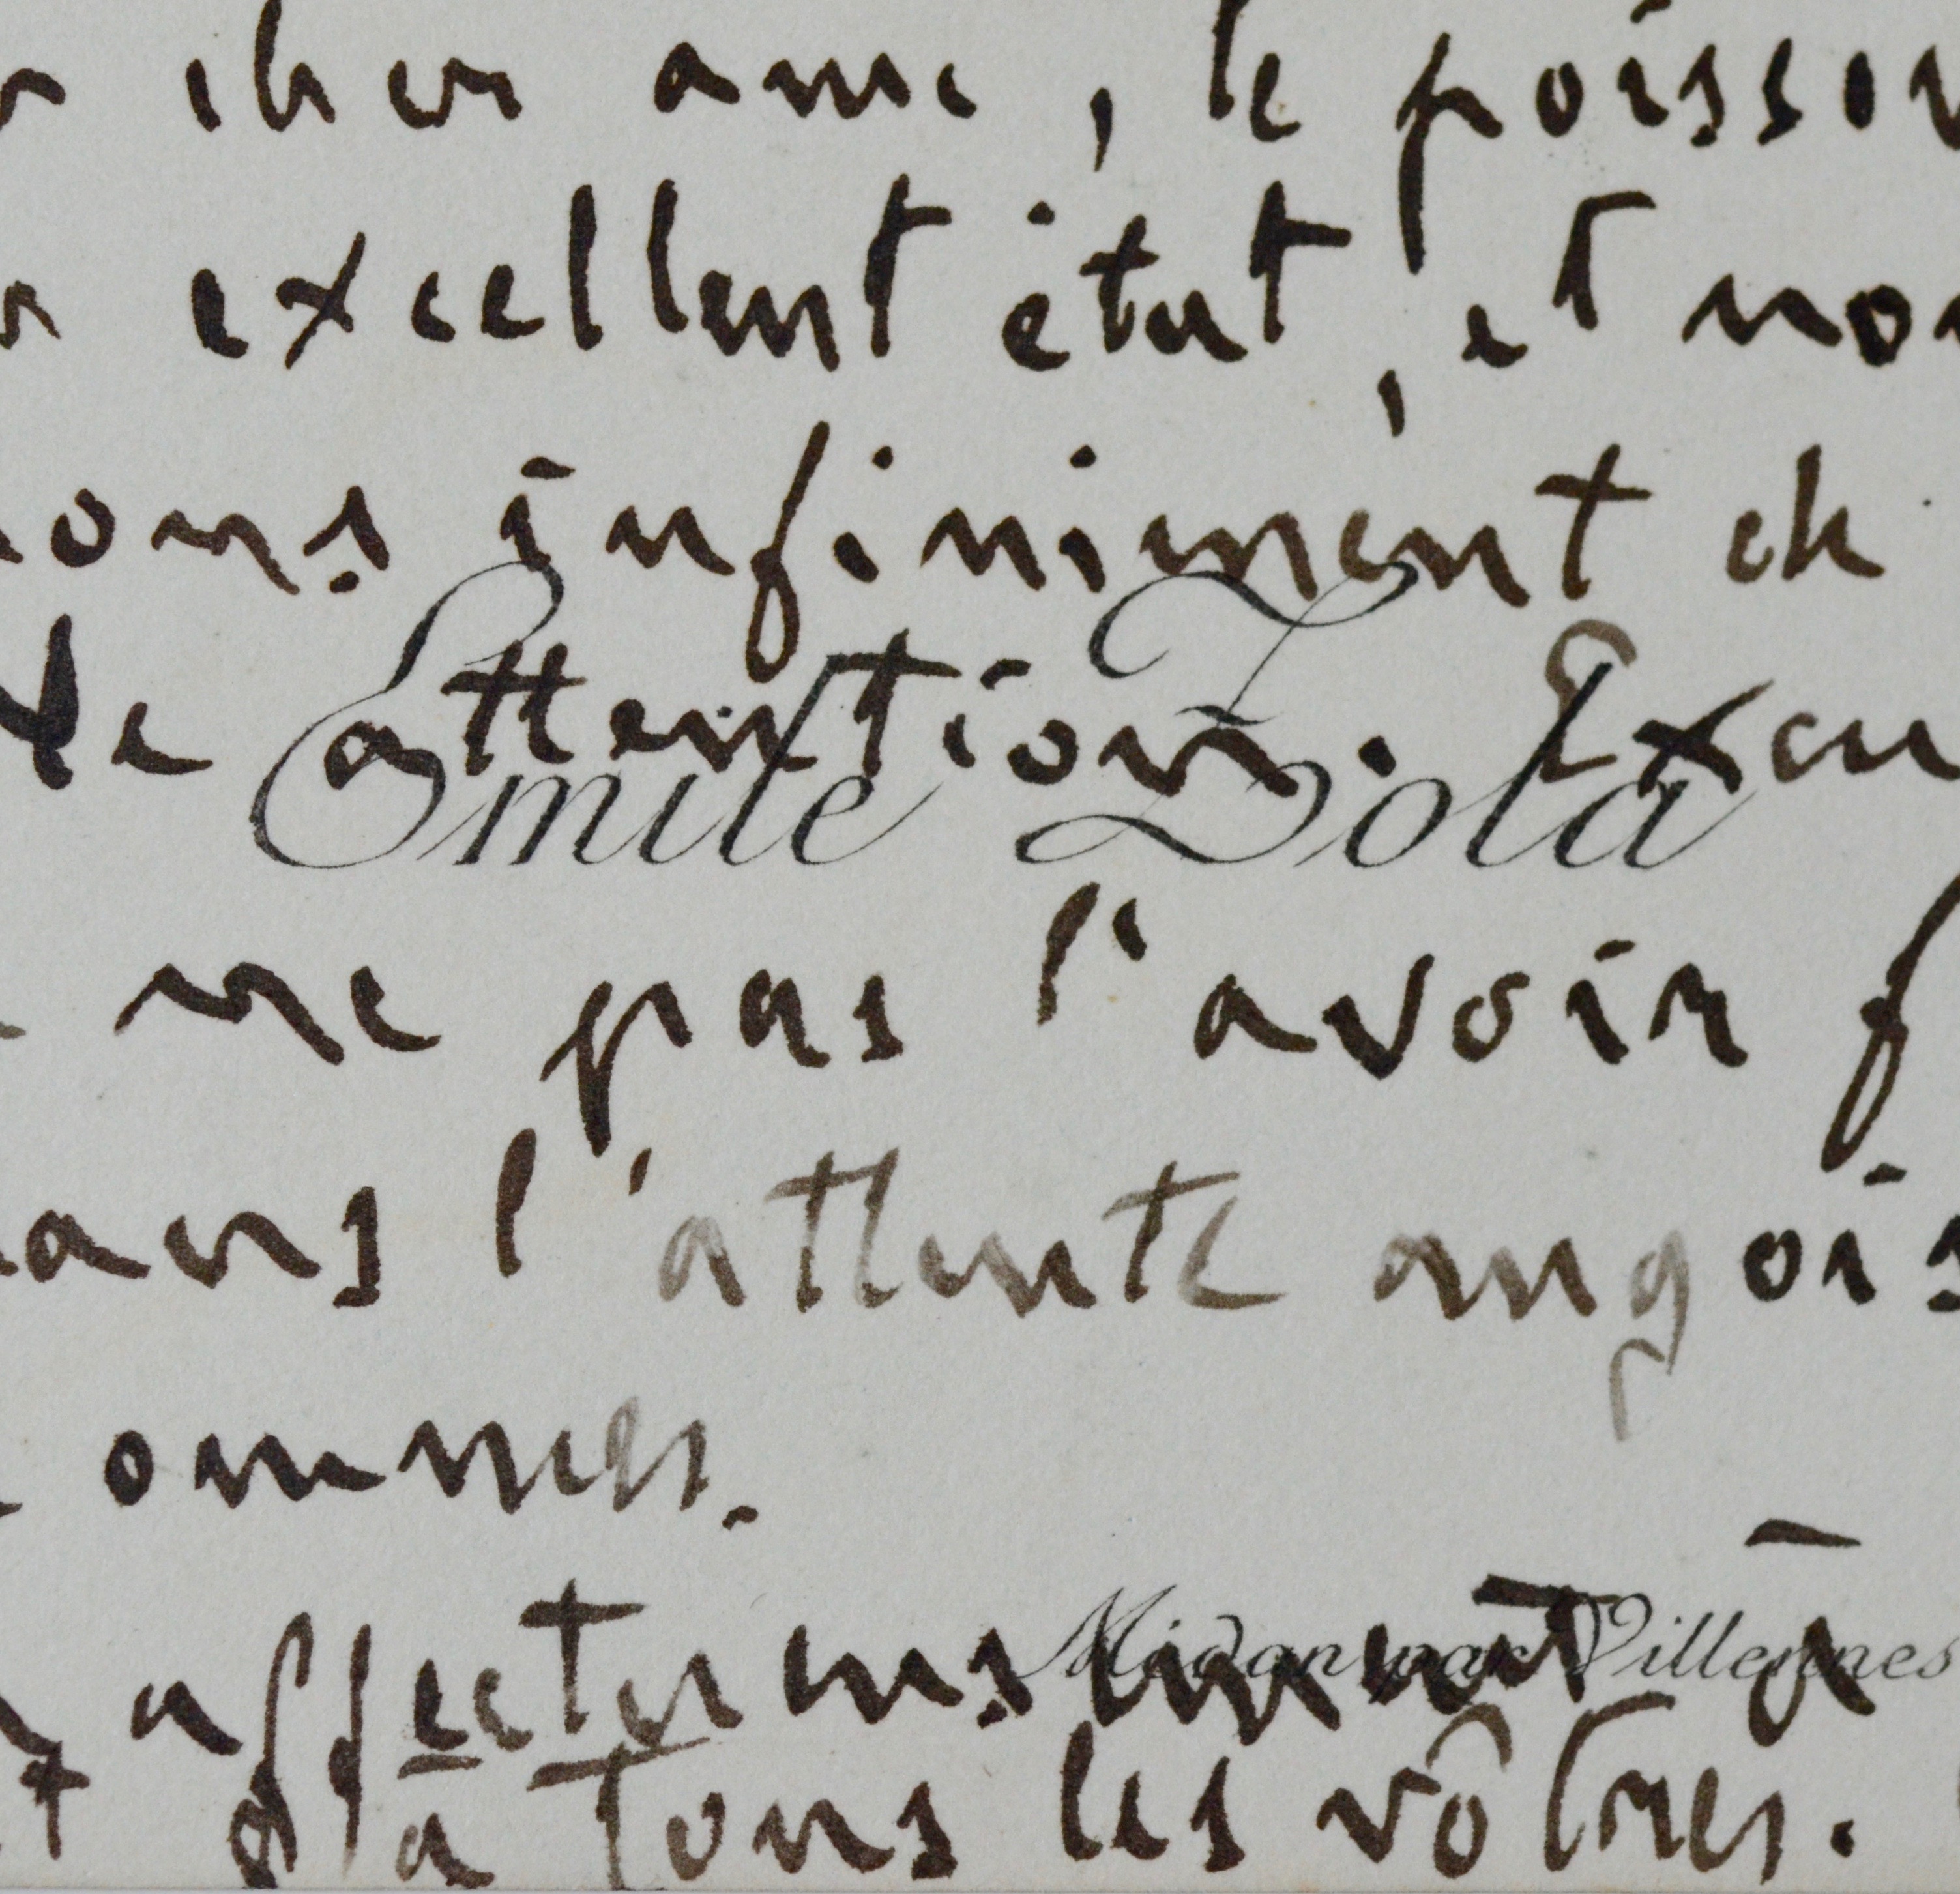 cher ami, le poisson
excellent état, et nou
ons infiniment de
te attention. Excu
Emile Zola
ne pas l'avoir f
dans l'attente angois
ommes.
affectueusement à
Médan par Villennes
et à tous les vôtres.